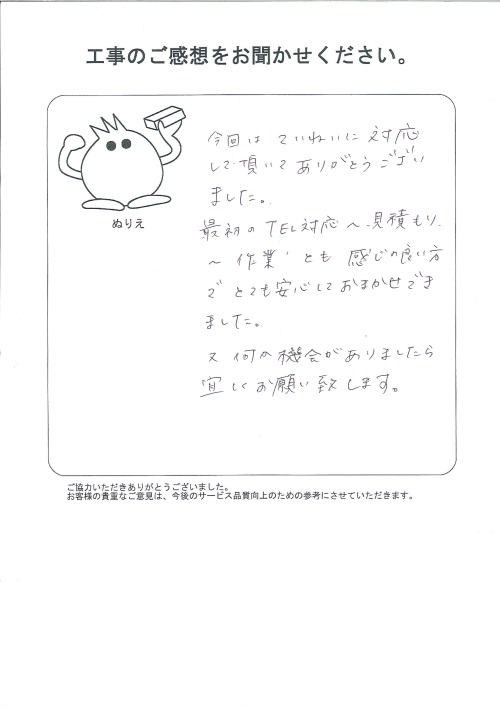 工事のご感想をお聞かせください。
今回は ていねいに 対応
して頂いて ありがとうござい
ました。
最初の TEL対応〜見積もり
〜 作業 とも 感じの良い方
で とても安心しておまかせでき
ました。
又 何かの機会がありましたら
宜しくお願い致します。
ぬりえ
ご協力いただきありがとうございました。
お客様の貴重なご意見は、今後のサービス品質向上のための参考にさせていただきます。